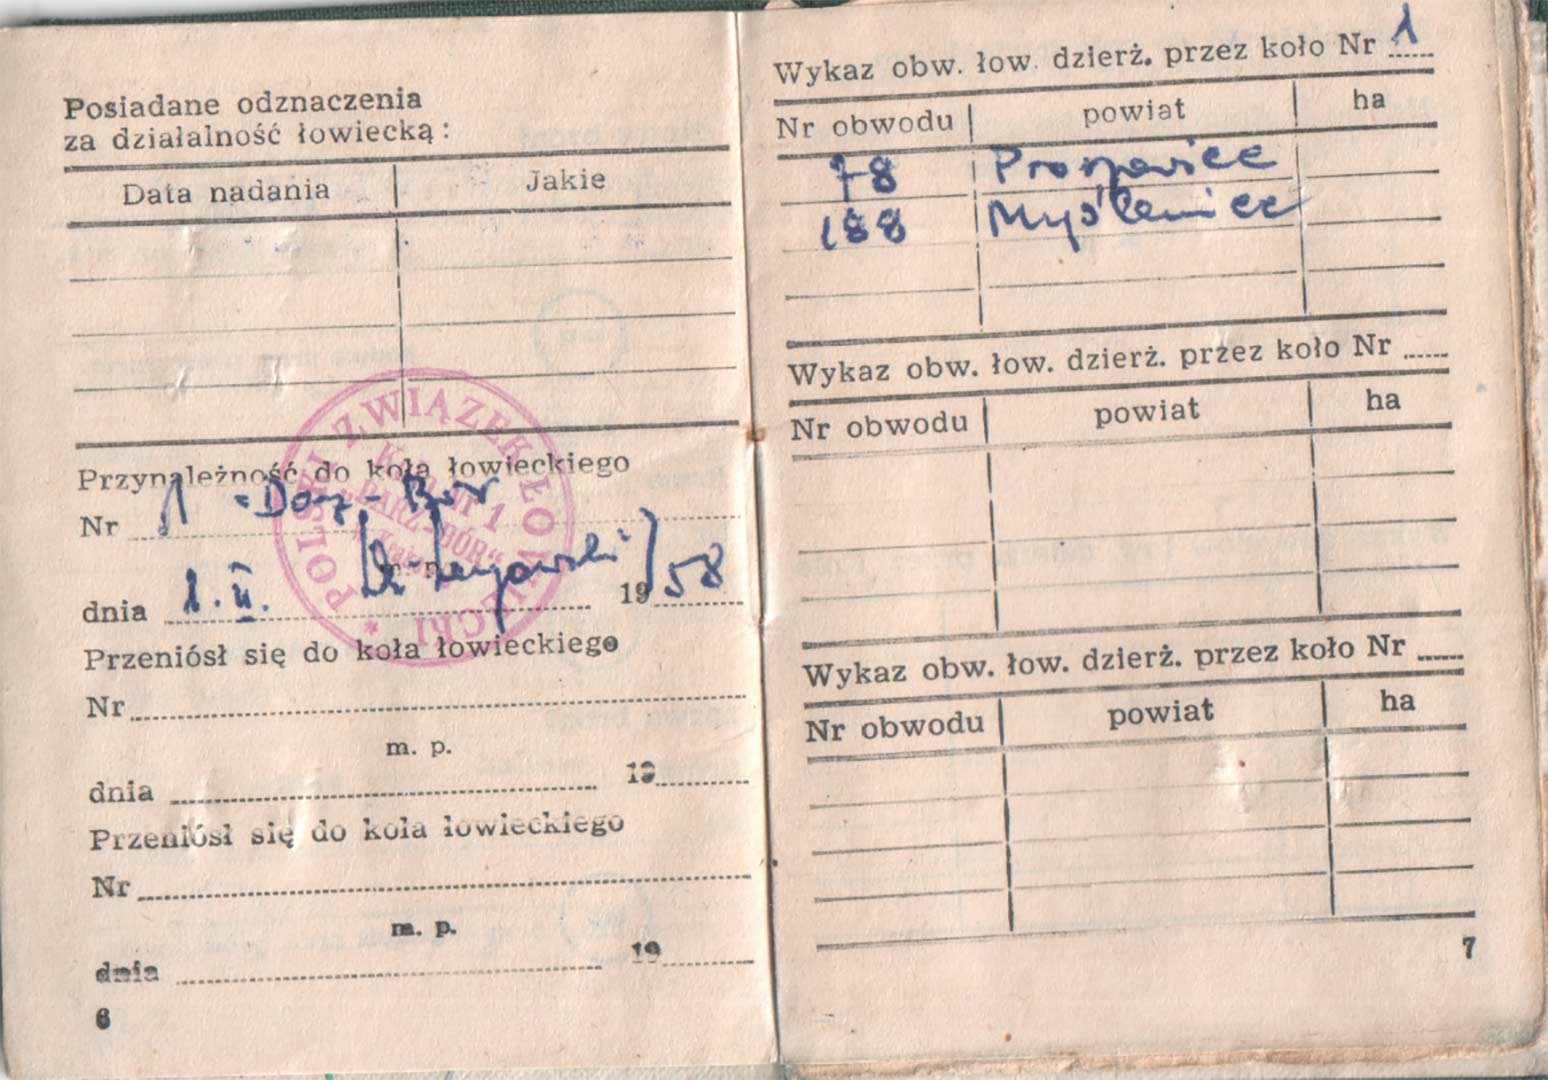 Posiadane odznaczenia
za działalność łowiecką:
Data nadania Jakie
Przynależność do koła łowieckiego
Nr 1 "Darz-Bór
m. p.
dnia 1. II. 1958
POLSKI ZWIĄZEK ŁOWIECKI
Koło Nr 1
„DARZ-BÓR"
Przeniósł się do koła łowieckiego
Nr
m. p.
dnia 19
Przeniósł się do koła łowieckiego
Nr
m. p.
dnia 19
6
Wykaz obw. łow. dzierż. przez koło Nr 1
Nr obwodu powiat ha
78 Proszowice
188 Myślenice
Wykaz obw. łow. dzierż. przez koło Nr
Nr obwodu powiat ha
Wykaz obw. łow. dzierż. przez koło Nr
Nr obwodu powiat ha
7